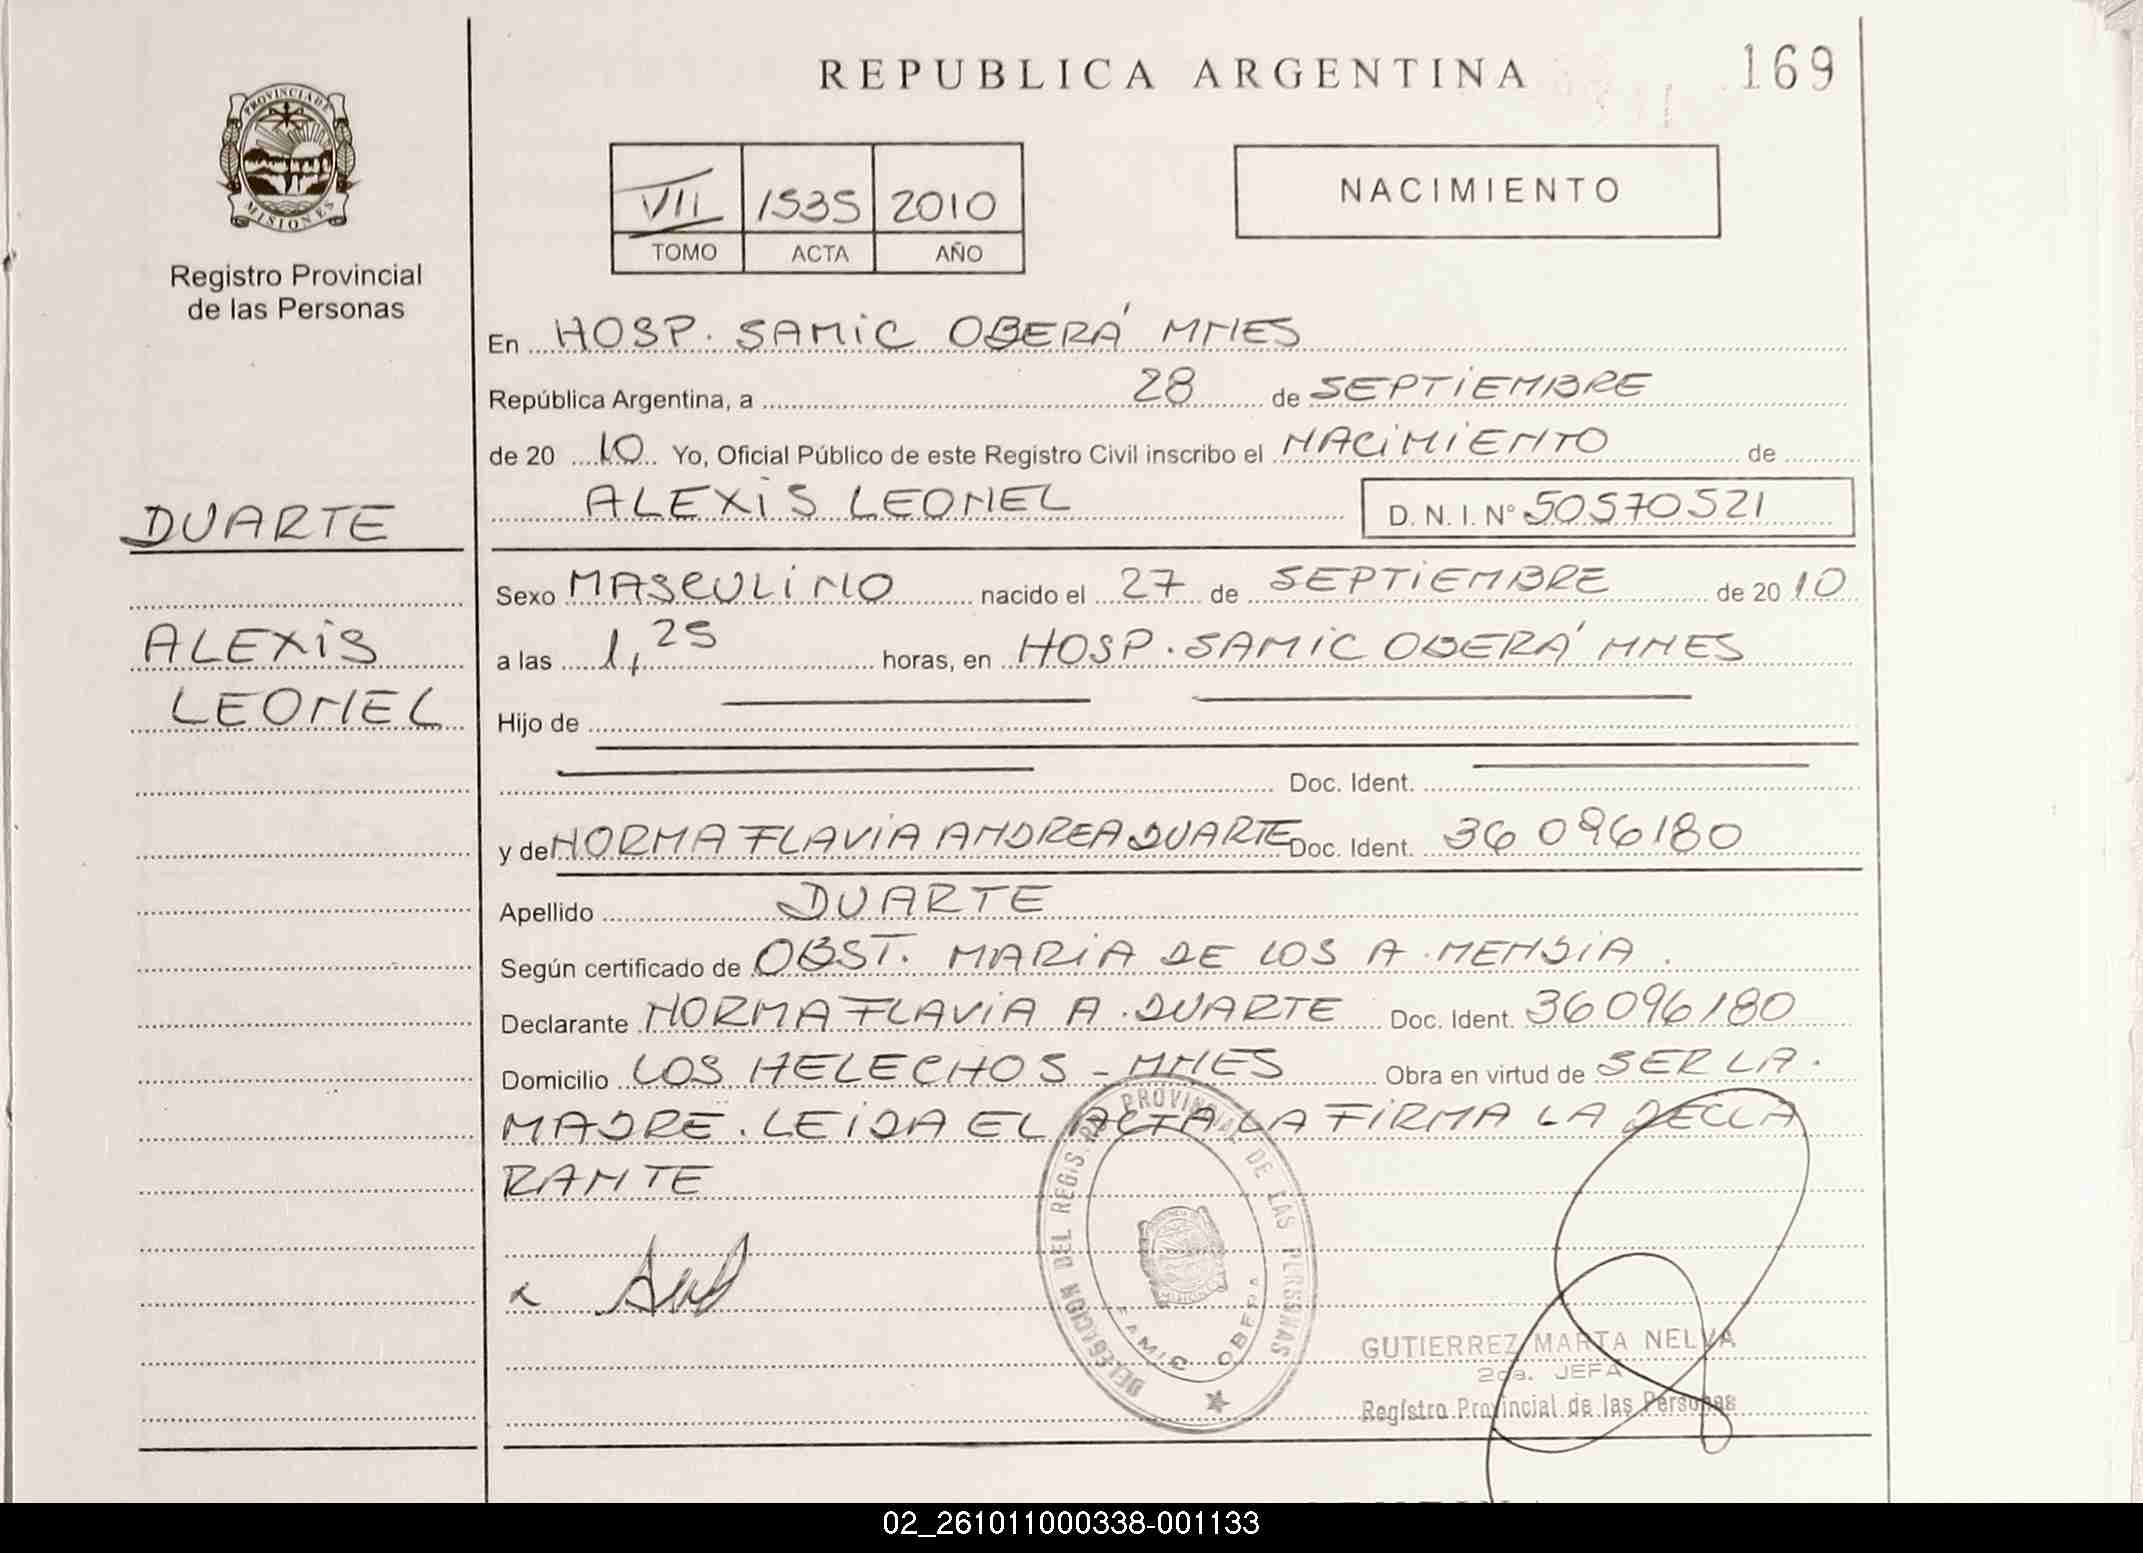 REPUBLICA ARGENTINA
169
PROVINCIA DE
MISIONES
Registro Provincial
de las Personas
VII 1535 2010
TOMO ACTA AÑO
NACIMIENTO
En HOSP. SAMIC OBERÁ MNES
República Argentina, a 28 de SEPTIEMBRE
de 20 10 Yo, Oficial Público de este Registro Civil inscribo el NACIMIENTO de
ALEXIS LEONEL D. N. I. N° 50570521
DUARTE
ALEXIS
LEONEL
Sexo MASCULINO nacido el 27 de SEPTIEMBRE de 20 10
a las 1,25 horas, en HOSP. SAMIC OBERÁ MNES
Hijo de
Doc. Ident.
y de NORMA FLAVIA ANDREA DUARTE Doc. Ident. 36 096180
Apellido DUARTE
Según certificado de OBST. MARIA DE LOS A. MENDIA.
Declarante NORMA FLAVIA A. DUARTE Doc. Ident. 36096180
Domicilio LOS HELECHOS - MNES Obra en virtud de SER LA.
MADRE. LEIDA EL ACTA LA FIRMA LA DECLA
RANTE
DELEGACION DEL REGIS. PROVINCIAL DE LAS PERSONAS
SAMIC OBERA
GUTIERREZ MARTA NELVA
2da. JEFA
Registro Provincial de las Personas
02_261011000338-001133